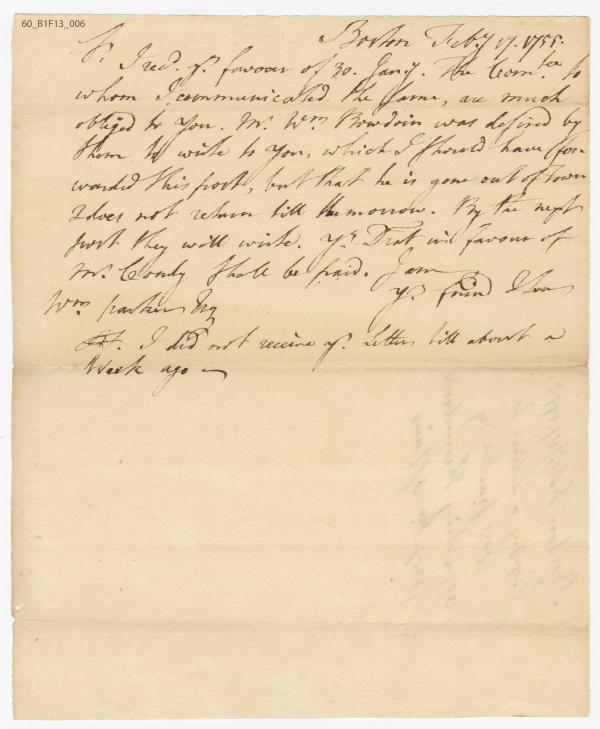 60_B1F13_006
Boston Feby 17. 1755.
Sr. I recd. yr. favour of 30. Jany. The Comtee to
whom I communicated the same, are much
obliged to you. Mr. Wm Bowdoin was desired by
them to write to you, which I should have for
warded this post, but that he is gone out of Town
& does not return till the morrow. By the next
post they will write. yr. Draft in favour of
Mr. Condy shall be paid. I am
yr. friend & Ser
Wm parker Esq
I did not receive yr. Letter till about a
Week ago